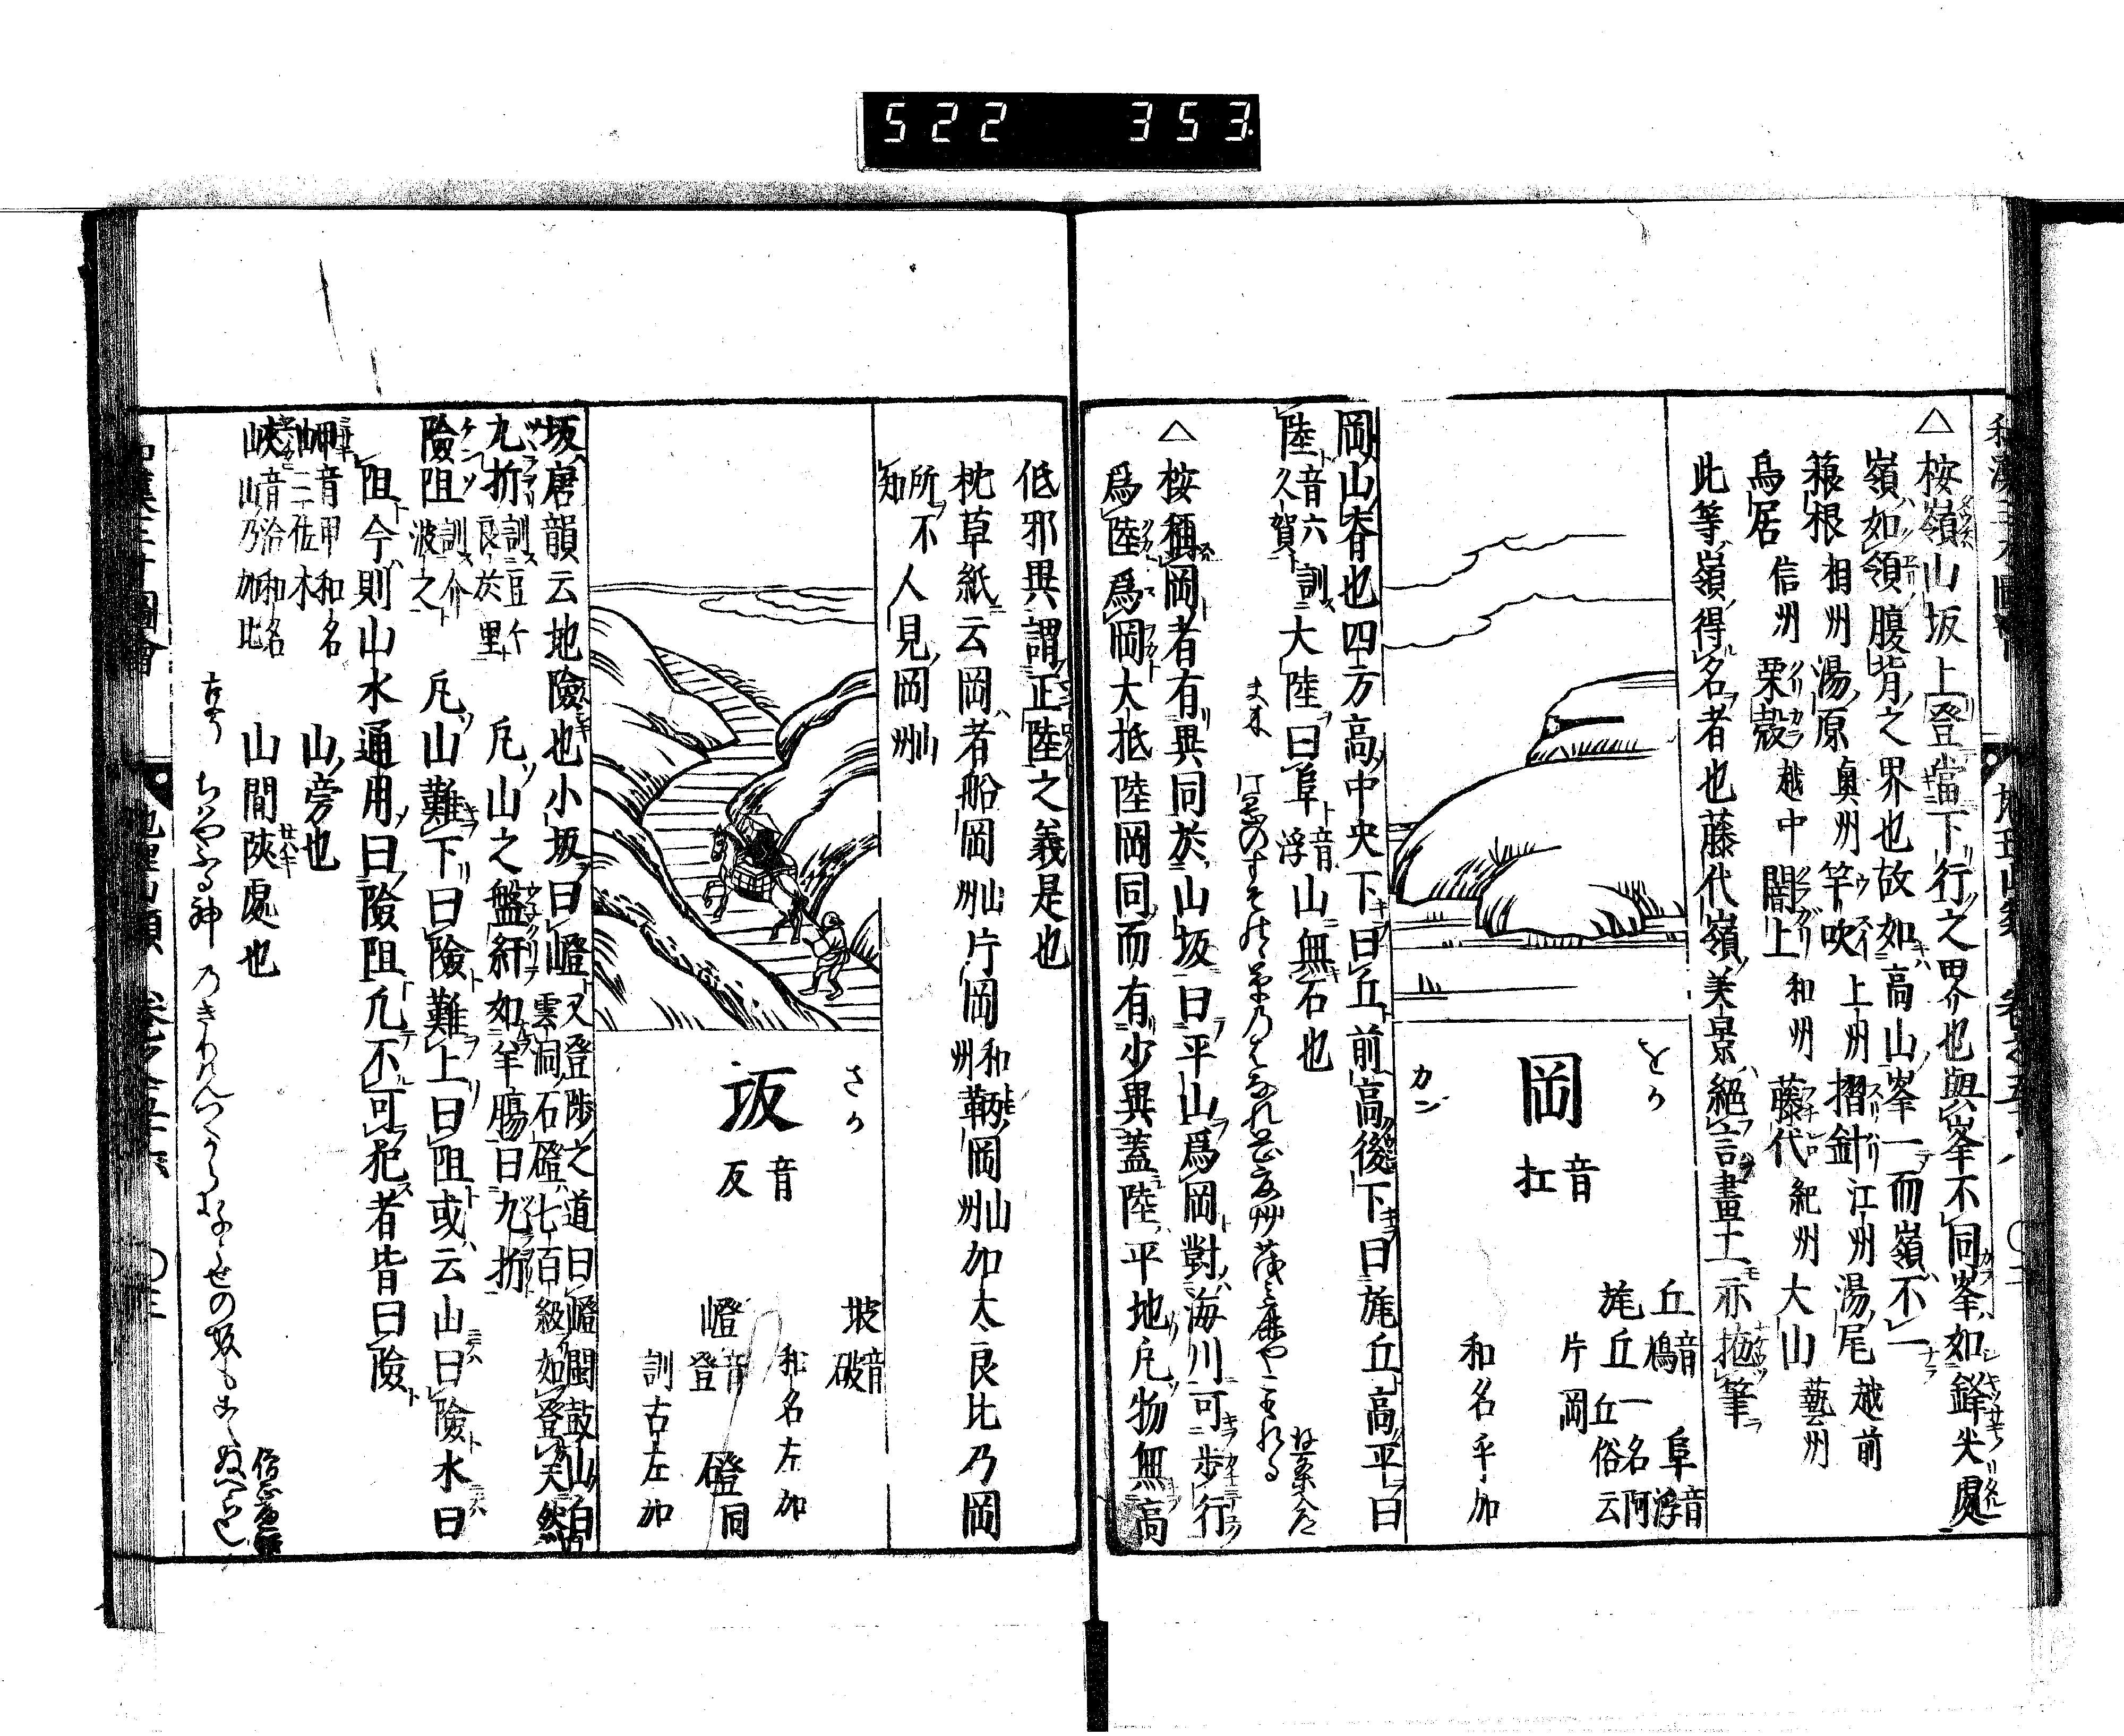 522 353
△桉嶺山坂上登當下行之界也與峯不同峯如鋒尖處
嶺如領腹背之界也故如高山峯一而嶺不一
箱根 相州 湯原 奥州 竿吹 上州 摺針 江州 湯尾 越前
鳥居 信州 栗殻 越中 闇上 和州 藤代 紀州 大山 藝州
此等嶺得名者也藤代嶺美景絕言畫工亦抛筆
をか
岡
カン
音扛
丘 音鳩 阜 音浮
旄丘 一名阿丘俗云片岡
和名乎加
岡山脊也四方高中央下曰丘前高後下曰旄丘高平曰
陸 音六訓久賀 大陸曰阜 音浮 山無石也
△桉稱岡者有異同於山坂曰平山爲岡對海川可步行
爲陸爲岡大抵陸岡同而有少異蓋陸平地凡物無高
低邪異謂正陸之義是也
枕草紙云岡者船岡 山州 片岡 和州 鞆岡 山州 加太良比乃岡
所不知人見岡 山州
さか
坂
音反
坡 音破
和名左加
嶝 音登 磴 同
訓古左加
坂唐韻云地險也小坂曰嶝 又登陟之道曰嶝閩鼓山白雲洞石磴七百級如登天然
九折 訓豆々良於里 凡山之盤紆如羊膓曰九折
險阻 訓介波之 凡山難下曰險難上曰阻或云山曰險水曰
阻今則山水通用曰險阻凡不可犯者皆曰險
岬 音甲和名三佐木 山旁也
峽 音洽和名山乃加比 山間陜處也
古今 ちはやふる神乃きりけんつくからに千とせの坂もこえぬへらなり